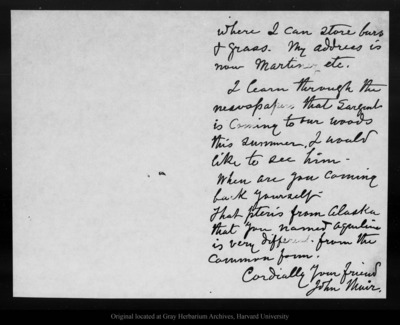 where I can store burs
& grass. My address is
now Martinez, etc.
I learn through the
newspapers that Sargent
is coming to our woods
this summer, I would
like to see him -
When are you coming
back yourself -
That Pteris from Alaska
that you named aquilina
is very different from the
common form.
Cordially Your friend
John Muir.
Original located at Gray Herbarium Archives, Harvard University